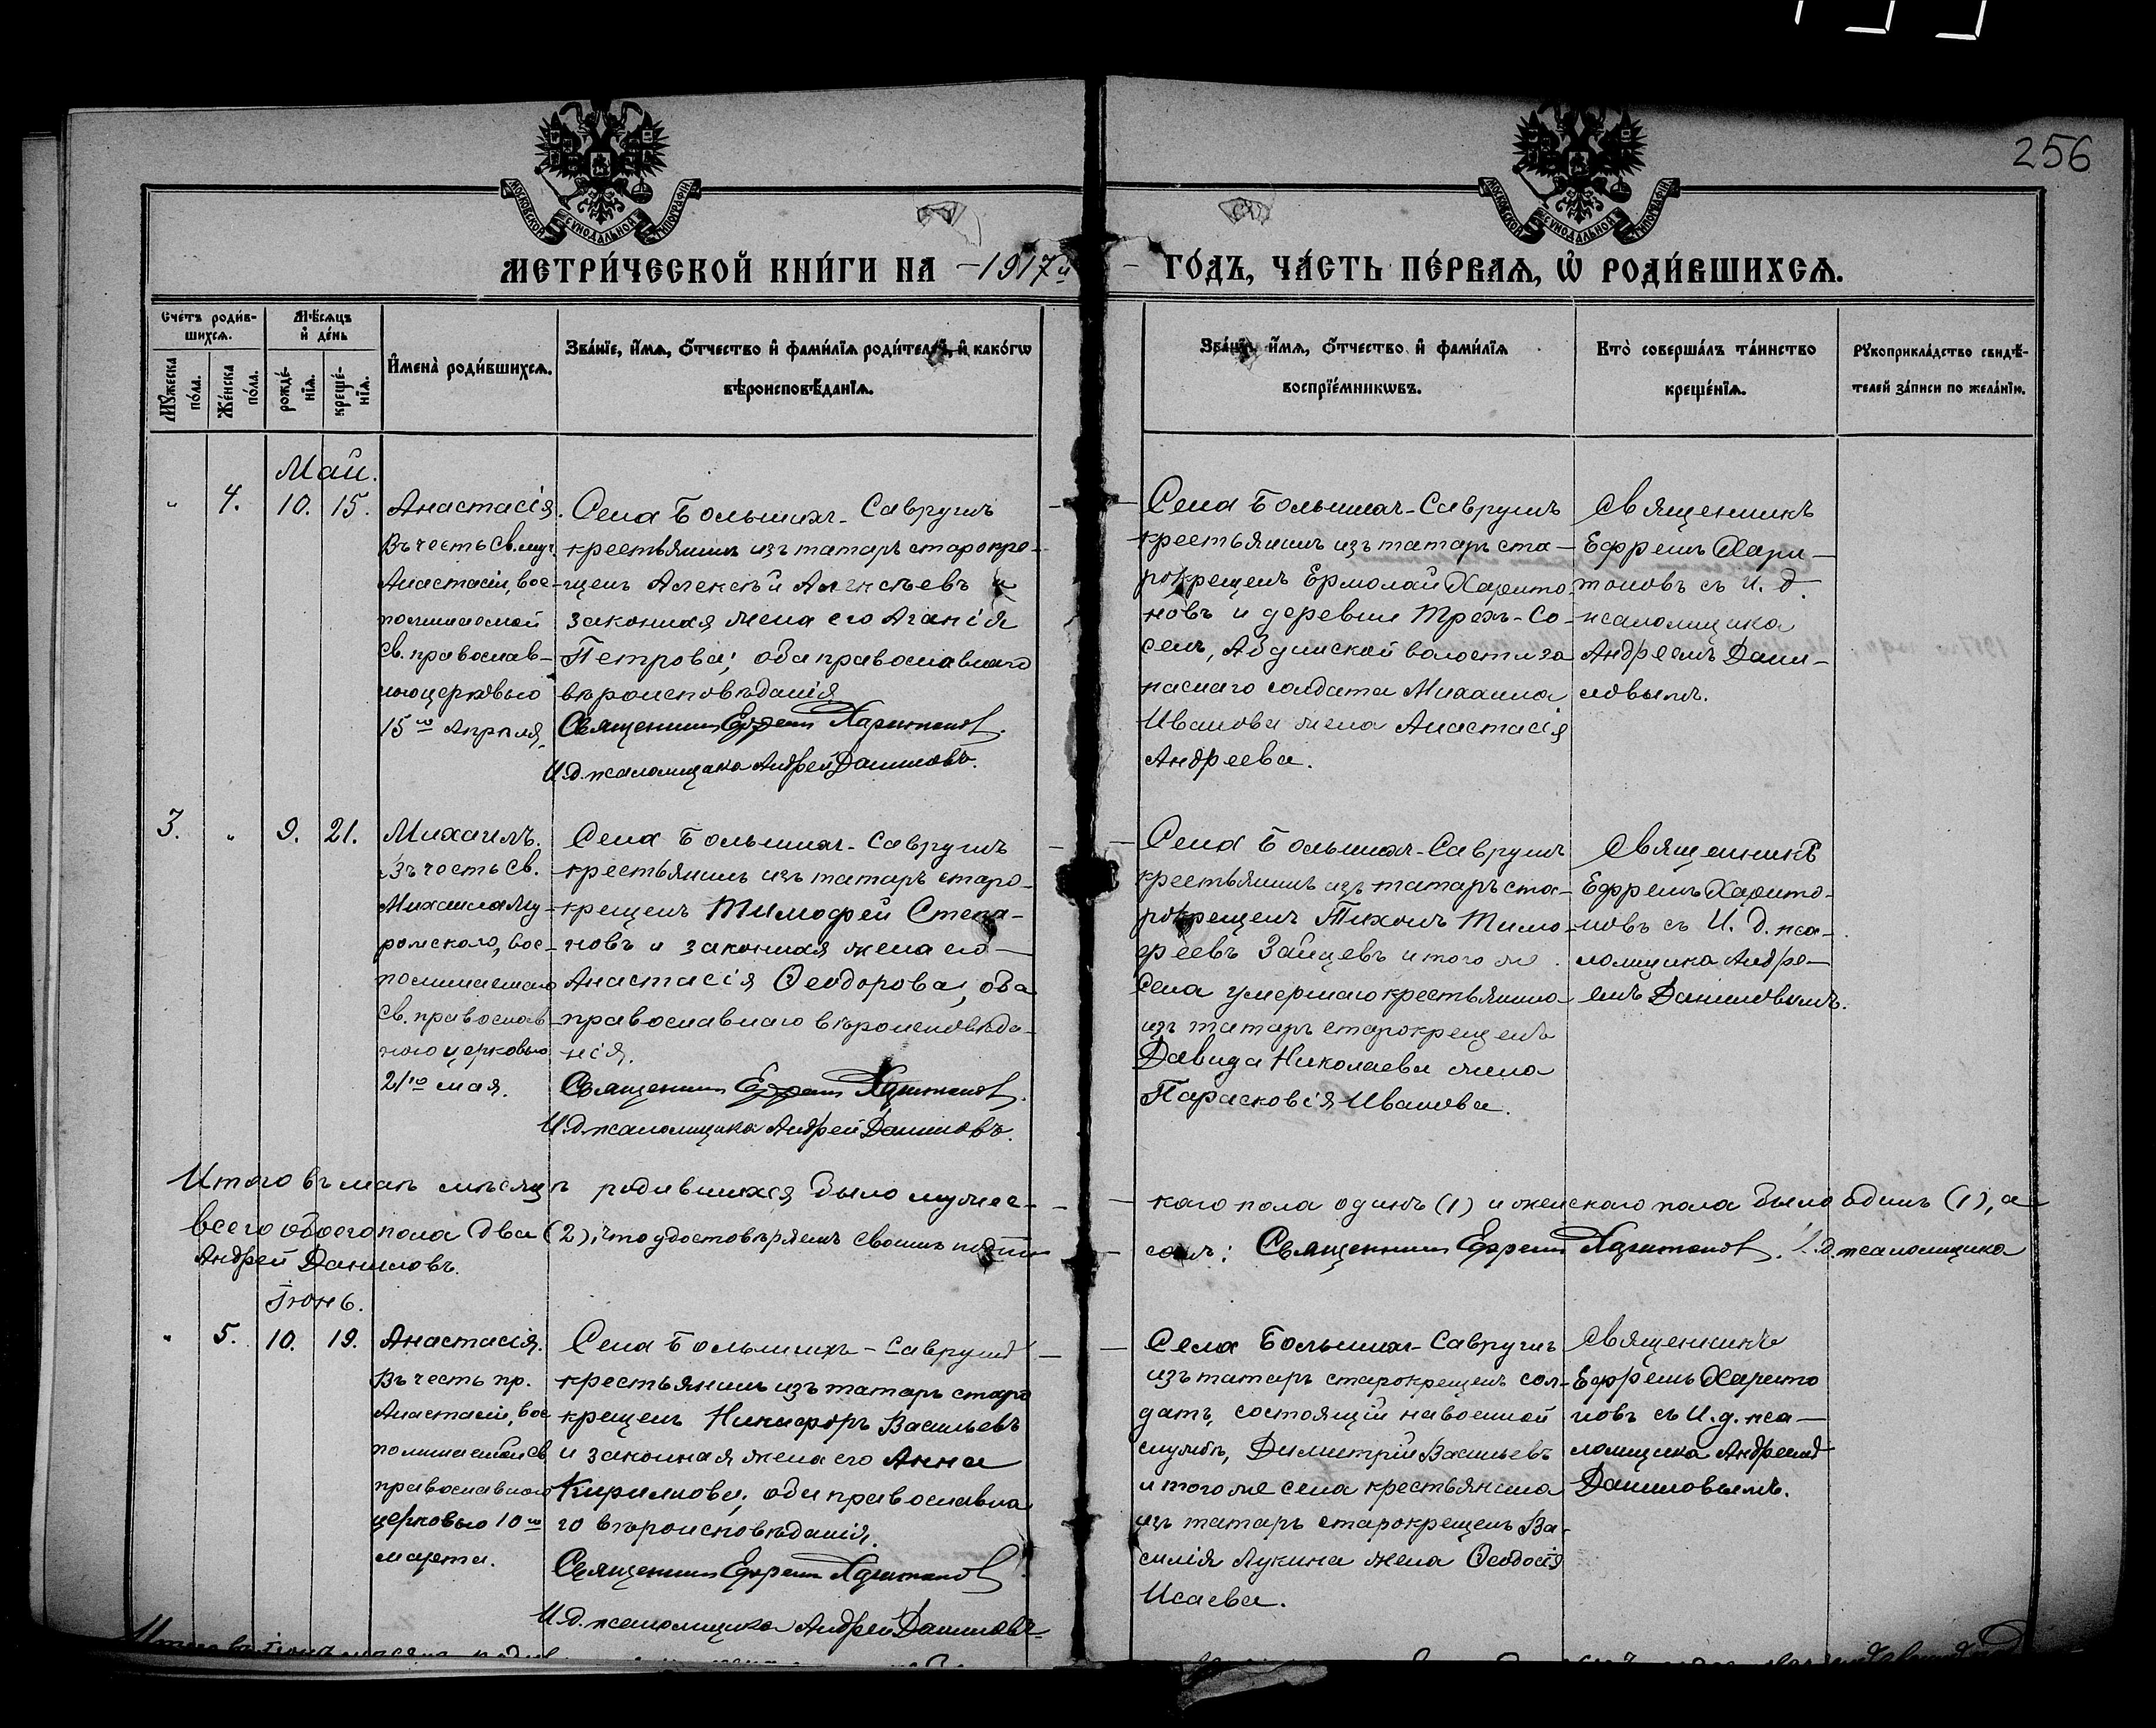 256
МОСКОВСКОЙ СѴНОДАЛЬНОЙ ТИПОГРАФІИ
МОСКОВСКОЙ СѴНОДАЛЬНОЙ ТИПОГРАФІИ
МЕТРИ́ЧЕСКОЙ КНИ́ГИ НА -1917й- ГО́ДЪ, ЧА́СТЬ ПЕ́РВАѦ, Ѡ҆ РОДИ́ВШИХСѦ.
Сче́тъ роди́в-
шихсѧ.
Мꙋ́жеска
по́ла.
Же́нска
по́ла.
Мѣ́сѧцъ
и҆ де́нь
рожде́-
нїѧ.
креще́-
нїѧ.
И҆мена̀ роди́вшихсѧ.
Зва́нїе, и҆́мѧ, ѻ҆́тчество и҆ фами́лїѧ роди́телей, и҆ како́гѡ
вѣроисповѣ́данїѧ.
Зва́нїе, и҆́мѧ, ѻ҆́тчество и҆ фами́лїѧ
воспрїе́мникѡвъ.
Кто̀ соверша́лъ та́инство
креще́нїѧ.
Рꙋкоприкла́дство свидѣ́-
телей за́писи по жела́нїю.
Май.
" 4. 10. 15.
Анастасія.
Въ честь св. муч.
Анастасіи, вос-
поминаемой
св. православ-
ною церковью
15го Апрѣля.
Села Большихъ-Саврушъ
крестьянинъ изъ татаръ старокре-
щенъ Алексѣй Алексѣевъ и
законная жена его Агапія
Петрова; оба православнаго
вѣроисповѣданія
Священникъ Ефремъ Харитоновъ.
И.д. псаломщика Андрей Даниловъ.
Села Большихъ-Саврушъ
крестьянинъ изъ татаръ ста-
рокрещенъ Ермолай Харито-
новъ и деревни Трехъ-Со-
сенъ, Абдинской волости за
паснаго солдата Михаила
Иванова жена Анастасія
Андреева.
Священникъ
Ефремъ Хари-
тоновъ съ И. д.
псаломщика
Андреемъ Дани-
ловымъ.
3. " 9. 21.
Михаилъ.
Въ честь св.
Михаила Му-
ромского, вос-
поминаемаго
св. православ-
ною церковью
21го мая.
Села Большихъ-Саврушъ
крестьянинъ изъ татаръ старо-
крещенъ Тимофей Степа-
новъ и законная жена его
Анастасія Ѳеодорова, оба
православнаго вѣроисповѣда-
нія.
Священникъ Ефремъ Харитоновъ.
И.д. псаломщика Андрей Даниловъ.
Села Большихъ-Саврушъ
крестьянинъ изъ татаръ ста-
рокрещенъ Тихонъ Тимо-
феевъ Зайцевъ и того же
села умершаго крестьянина
изъ татаръ старокрещенъ
Давида Николаева жена
Парасковія Иванова.
Священникъ
Ефремъ Харито-
новъ съ И. д. пса-
ломщика Андре-
емъ Даниловымъ.
Итого въ маѣ мѣсяцѣ родившихся было мужес-
каго пола одинъ (1) и женскаго пола было одинъ (1), а
всего обоего пола два (2), что удостовѣряемъ своимъ подпи-
сомъ: Священникъ Ефремъ Харитоновъ. И.д. псаломщика
Андрей Даниловъ.
Іюнь.
" 5. 10. 19.
Анастасія.
Въ честь пр.
Анастасіи, вос-
поминаемой св.
православною
церковью 10го
марта.
Села Большихъ-Саврушъ
крестьянинъ изъ татаръ старо
крещенъ Никифоръ Васильевъ
и законная жена его Анна
Кириллова; оба православна
го вѣроисповѣданія.
Священникъ Ефремъ Харитоновъ
И.д. псаломщика Андрей Даниловъ.
Села Большихъ-Саврушъ
изъ татаръ старокрещенъ сол-
датъ, состоящій на военной
службѣ, Димитрій Васильевъ
и того же села крестьянина
изъ татаръ старокрещенъ Ва-
силія Лукина жена Ѳеодосія
Исаева.
Священникъ
Ефремъ Харито
новъ съ И.д. пса-
ломщика Андреемъ
Даниловымъ.